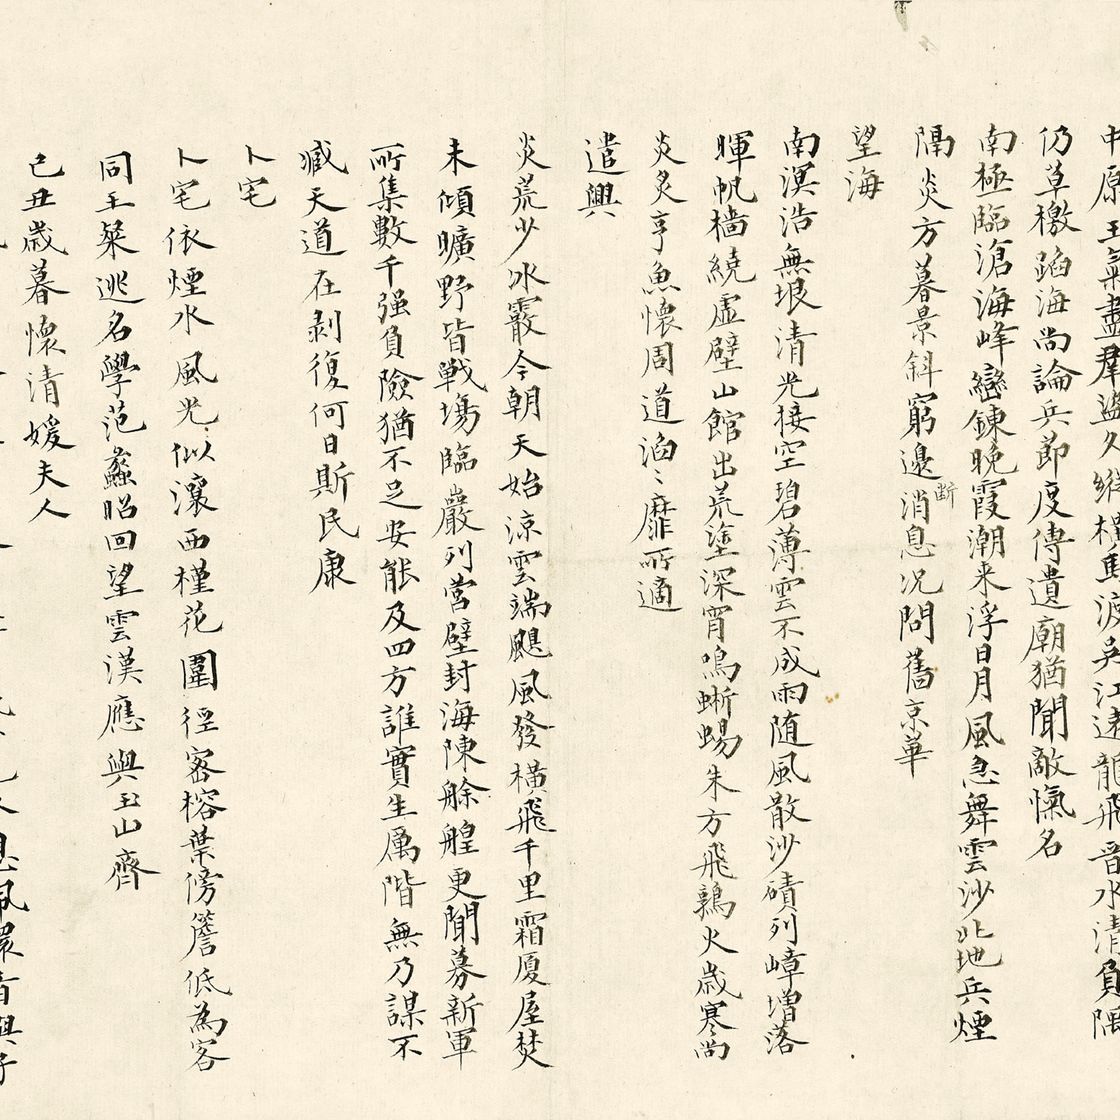 中原王氣盡羣盜久縱橫馬渡吳江遠龍飛晉水清負隅
仍草檄蹈海尚論兵節度傳遺廟猶聞敵愾名
南極臨滄海峰巒鍊晚霞潮来浮日月風急舞雲沙北地兵煙
隔炎方暮景斜窮邊消息断况問舊京華
望海
南溟浩無垠清光接空碧薄雲不成雨随風散沙磧列嶂增落
暉帆檣繞虛壁山館出荒塗深宵鳴蜥蜴朱方飛鶉火歲寒尚
炎炙亨魚懷周道滔〻靡所適
遣興
炎荒少冰霰今朝天始涼雲端颶風發橫飛千里霜厦屋焚
未傾曠野皆戰塲臨巖列營壁封海陳艅艎更聞募新軍
所集數千强負險猶不足安能及四方誰實生厲階無乃謀不
臧天道在剥復何日斯民康
卜宅
卜宅依煙水風光似瀼西槿花圍徑密榕葉傍簷低為客
同王粲逃名學范蠡昭回望雲漢應與玉山齊
己丑歲暮懷清媛夫人